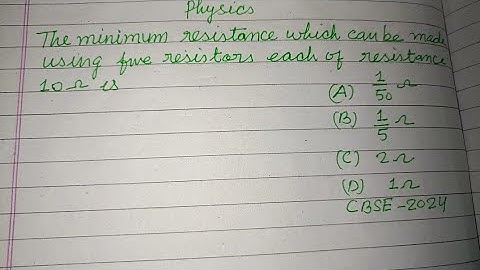 Physics
The minimum resistance which can be made
using five resistors each of resistance
10Ω is
(A) 1/50 Ω
(B) 1/5 Ω
(C) 2Ω
(D) 1Ω
CBSE-2024